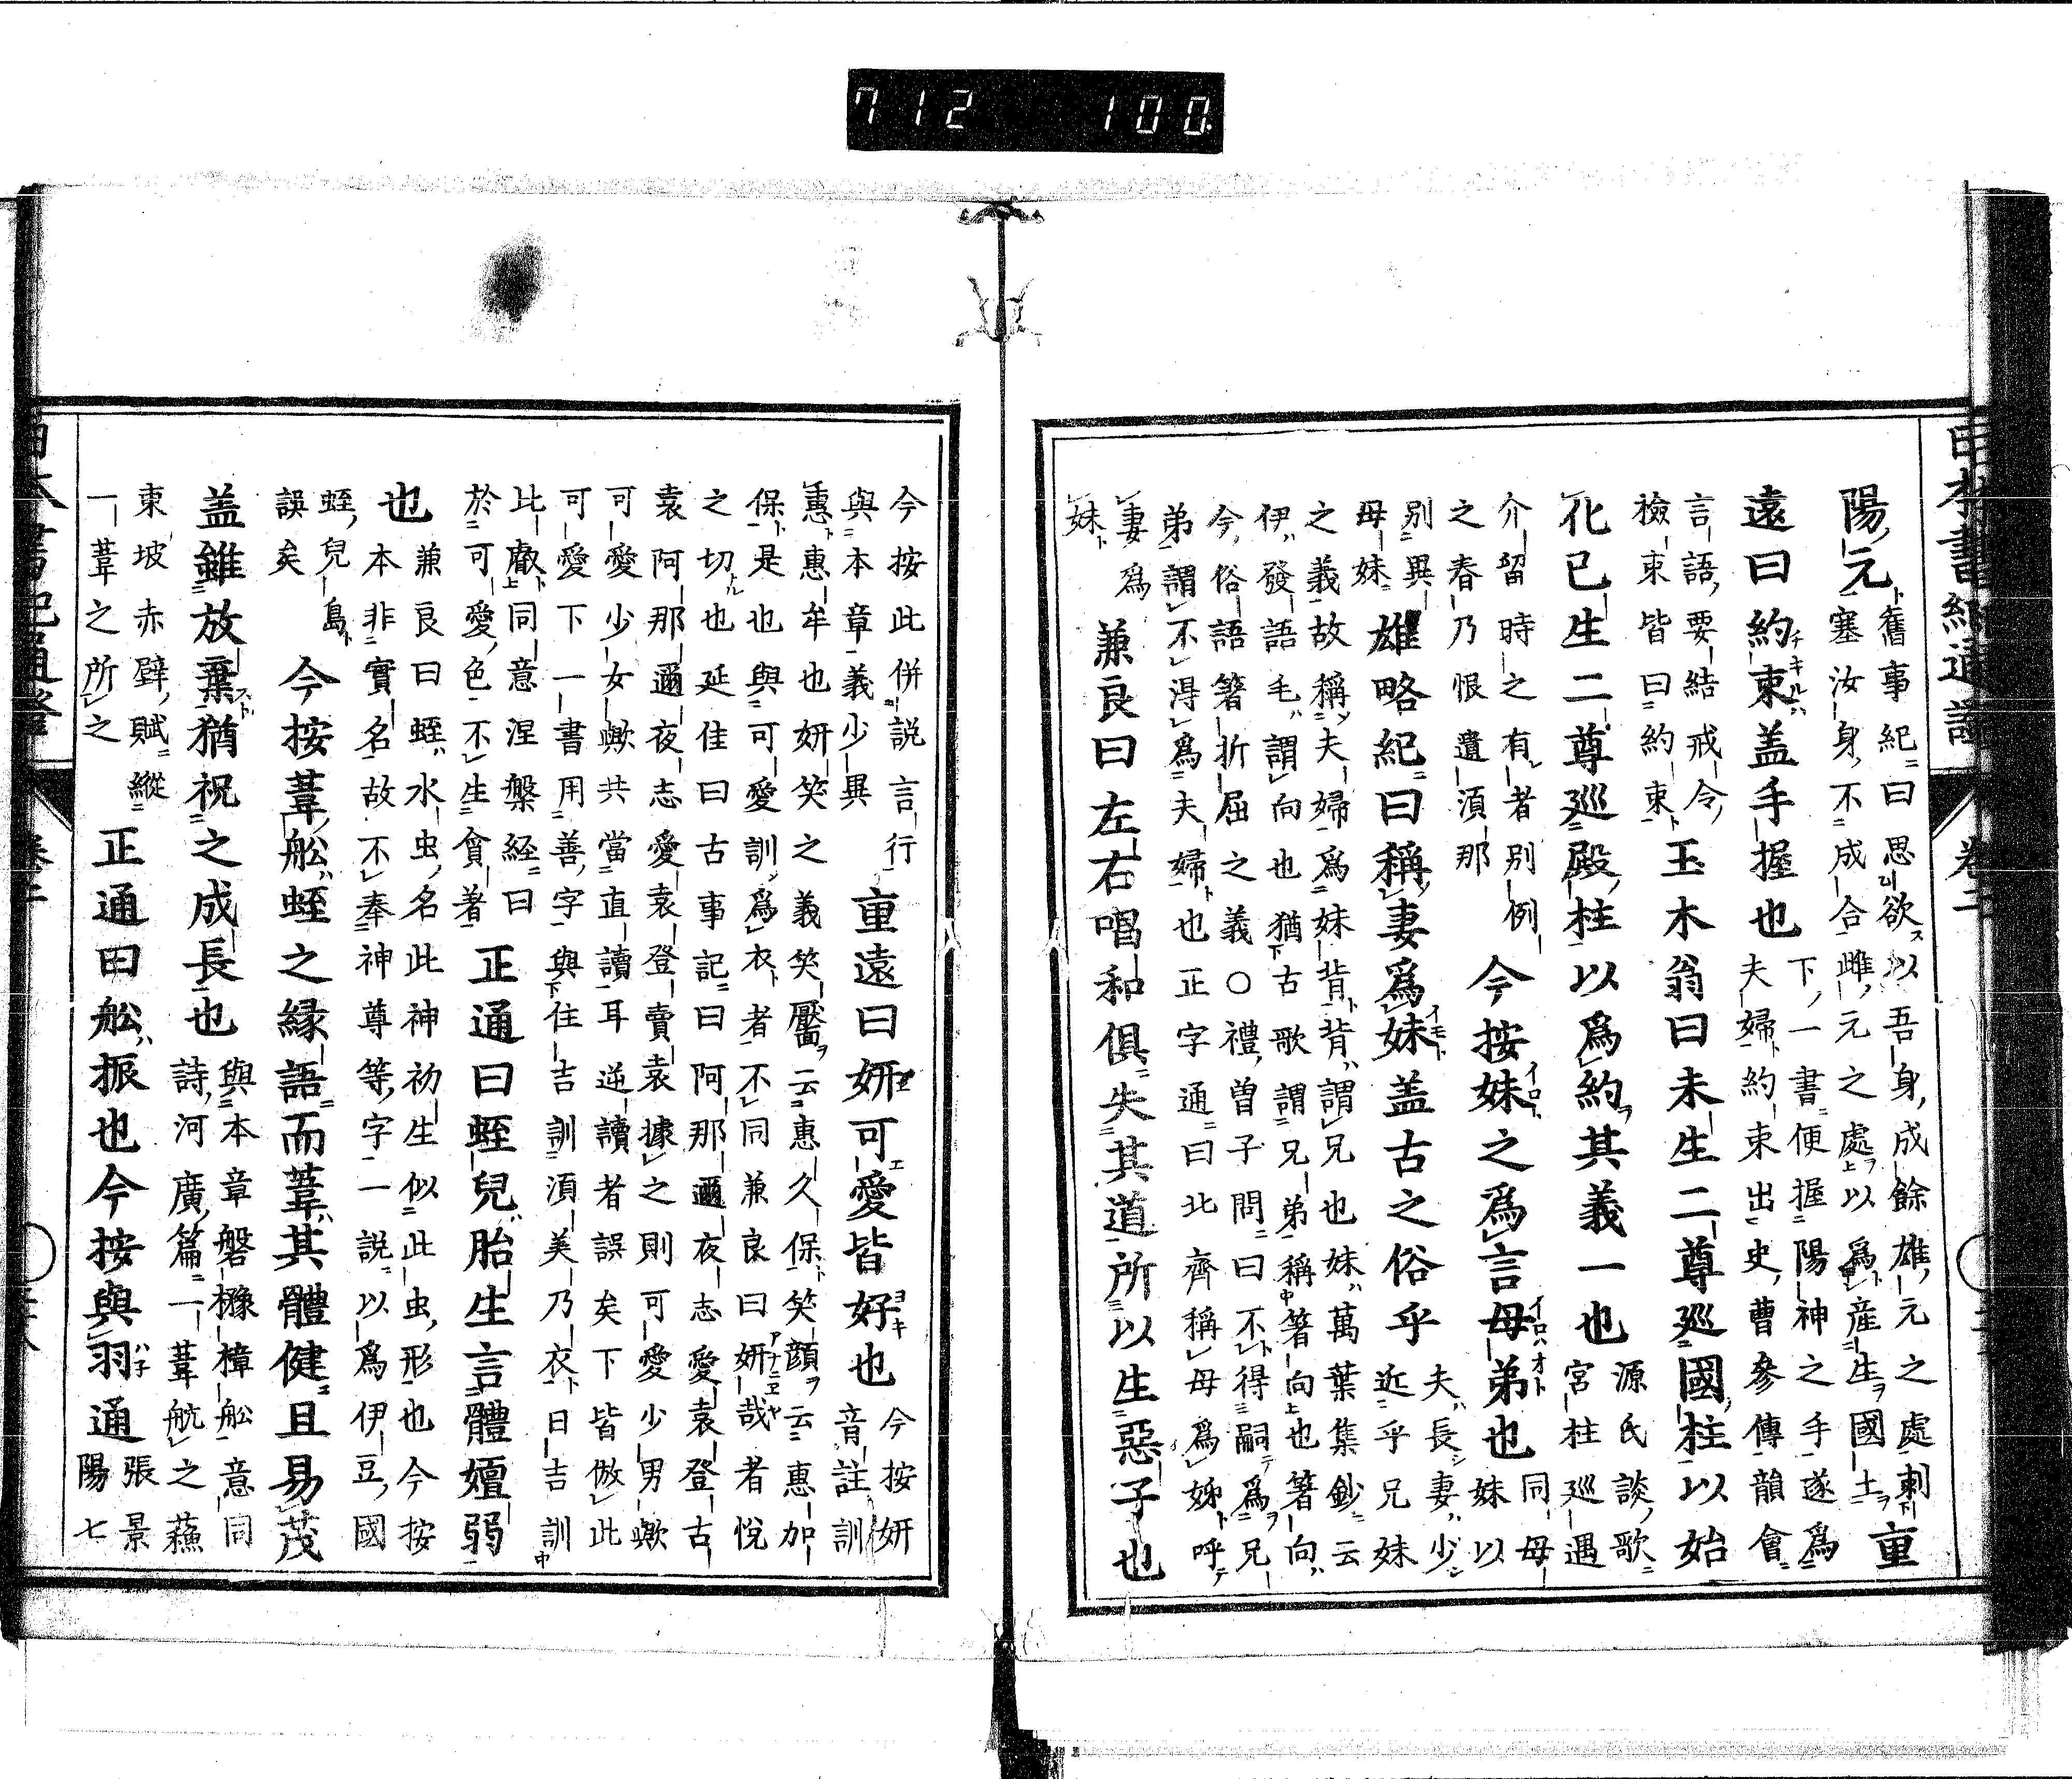 日本書紀通證　卷二
陽元
舊事紀曰思欲以吾身成餘雄元之處刺
塞汝身不成合雌元之處以爲産生國土
重
遠曰約束盖手握也
下一書便握陽神之手遂爲
夫婦約束出史曹參傳韻會
言語要結戒令
檢束皆曰約束
玉木翁曰未生二尊廵國柱以始
化已生二尊廵殿柱以爲約其義一也
源氏談歌
宮柱廵遇
介留時之有者別例
之春乃恨遺湏那
今按妹之爲言母弟也
同母
妹以
別異
母妹
雄略紀曰稱妻爲妹盖古之俗乎
夫長妻少
近乎兄妹
之義故稱夫婦爲妹背背謂兄也妹萬葉集鈔云
伊發語毛謂向也猶古歌謂兄弟稱箸向也箸向
今俗語箸折屈之義○禮曽子問曰不得嗣爲兄
弟謂不得爲夫婦也正字通曰北齊稱母爲姊呼
妻爲
妹
兼良曰左右唱和俱失其道所以生惡子也
今按此併説言行
與本章義少異
重遠曰妍可愛皆好也
今按妍
音註訓
惠惠牟也妍笑之義笑靨面云惠久保笑顔云惠加
保是也與可愛訓爲衣者不同兼良曰妍哉者悅
之切也延佳曰古事記曰阿那邇夜志愛袁登古
袁阿那邇夜志愛袁登賣袁據之則可愛少男歟
可愛少女歟共當直讀耳逆讀者誤矣下皆倣此
可愛下一書用善字與住吉訓湏美乃衣日吉訓
比叡同意涅槃経曰
於可愛色不生貪者
正通曰蛭兒胎生言體嬗弱
也
兼良曰蛭水虫名此神初生似此虫形也今按
本非實名故不奉神尊等字一説以爲伊豆國
蛭兒島
誤矣
今按葦舩蛭之縁語而葦其體健且易茂
盖雖放棄猶祝之成長也
與本章磐櫲樟舩意同
詩河廣篇一葦航之蘓
東坡赤壁賦縱
一葦之所之
正通曰舩振也今按與羽通
張景
陽七
712 100